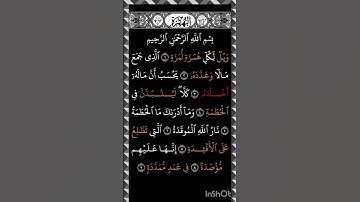 الهمزة
بِسْمِ اللَّهِ الرَّحْمَٰنِ الرَّحِيمِ
وَيْلٌ لِّكُلِّ هُمَزَةٍ لُّمَزَةٍ ١ الَّذِي جَمَعَ
مَالًا وَعَدَّدَهُ ٢ يَحْسَبُ أَنَّ مَالَهُ
أَخْلَدَهُ ٣ كَلَّا لَيُنبَذَنَّ فِي
الْحُطَمَةِ ٤ وَمَا أَدْرَاكَ مَا الْحُطَمَةُ
٥ نَارُ اللَّهِ الْمُوقَدَةُ ٦ الَّتِي تَطَّلِعُ
عَلَى الْأَفْئِدَةِ ٧ إِنَّهَا عَلَيْهِم
مُّؤْصَدَةٌ ٨ فِي عَمَدٍ مُّمَدَّدَةٍ ٩
InShOt